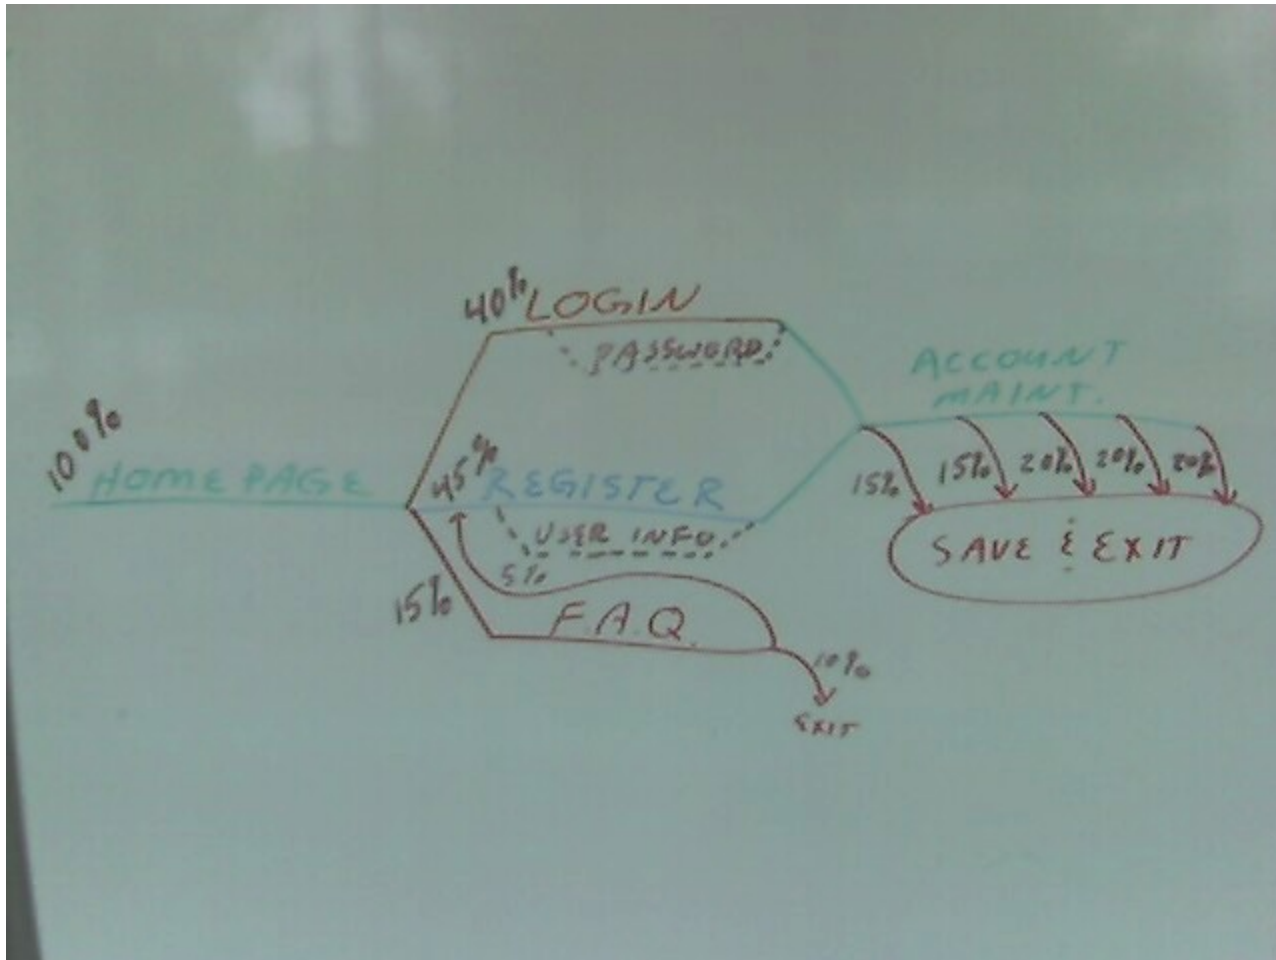 100%
HOME PAGE
40% LOGIN
PASSWORD
45% REGISTER
USER INFO
5%
15%
F.A.Q.
10%
EXIT
ACCOUNT
MAINT.
15% 15% 20% 20% 20%
SAVE & EXIT